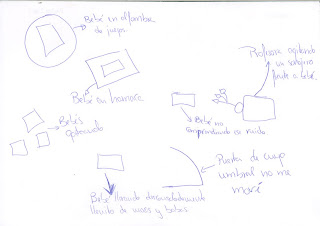 Bebé en alfombra
de juegos
Profesora agitando
un sonajero
frente a bebé.
Bebé en hamaca
Bebés
gateando
Bebé no
comprendiendo su ruido
Puerta de cuyo
umbral no me
moví
Bebé llorando desconsoladamente
llenito de mocos y babas